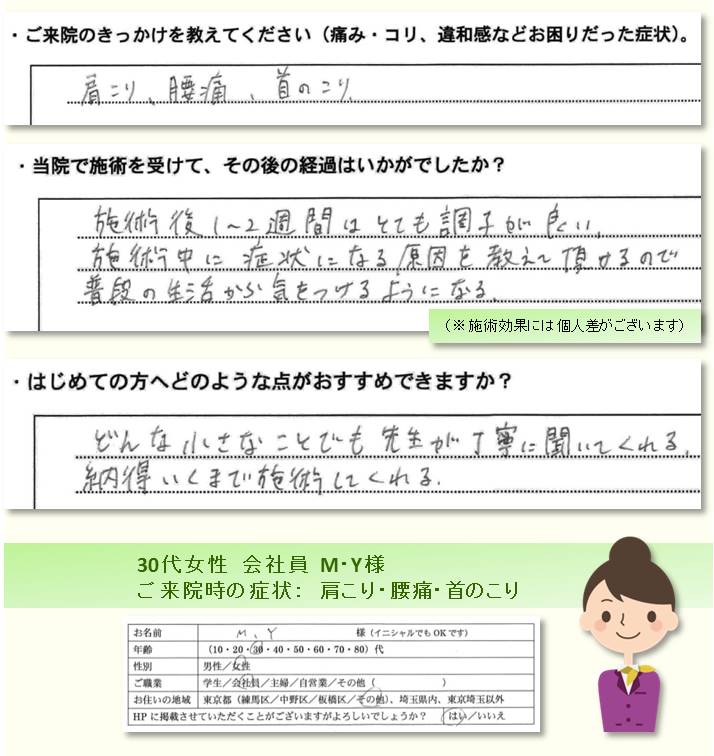 ・ご来院のきっかけを教えてください（痛み・コリ、違和感などお困りだった症状）。
肩こり、腰痛、首のこり
・当院で施術を受けて、その後の経過はいかがでしたか？
施術後1～2週間はとても調子が良い。
施術中に症状になる原因を教えて頂けるので
普段の生活から気をつけるようになる。
（※施術効果には個人差がございます）
・はじめての方へどのような点がおすすめできますか？
どんな小さなことでも先生が丁寧に聞いてくれる。
納得いくまで施術してくれる。
30代女性 会社員 M・Y様
ご来院時の症状： 肩こり・腰痛・首のこり
お名前 M、Y 様（イニシャルでもOKです）
年齢 （10・20・30・40・50・60・70・80）代
性別 男性／女性
ご職業 学生／会社員／主婦／自営業／その他（ ）
お住いの地域 東京都（練馬区／中野区／板橋区／その他）、埼玉県内、東京埼玉以外
HPに掲載させていただくことがございますがよろしいでしょうか？ はい／いいえ